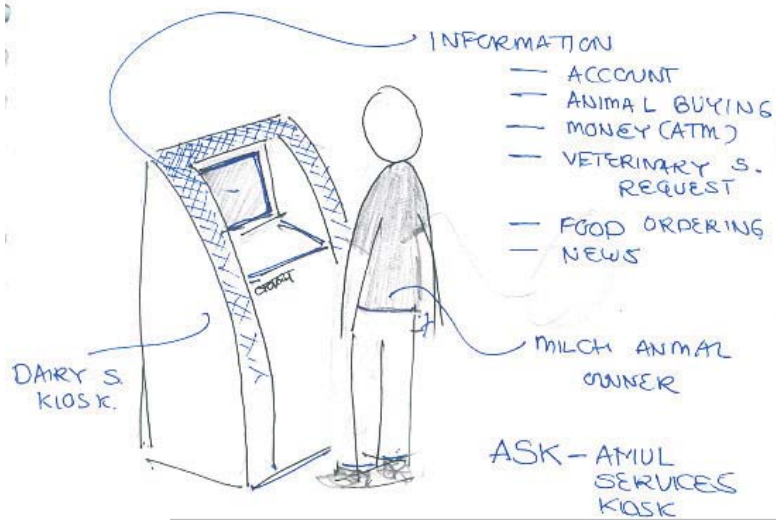 INFORMATION
— ACCOUNT
— ANIMAL BUYING
— MONEY (ATM)
— VETERINARY S.
REQUEST
— FOOD ORDERING
— NEWS
DAIRY S.
KIOSK.
MILCH ANIMAL
OWNER
ASK – AMUL
SERVICES
KIOSK